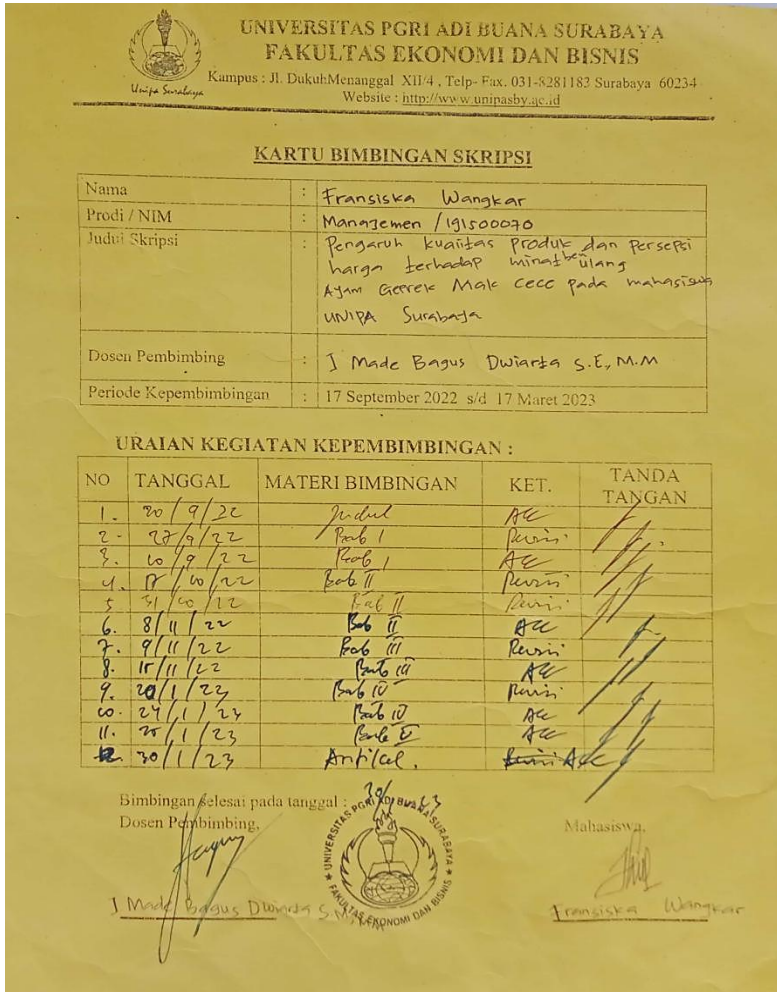 UNIVERSITAS PGRI ADI BUANA SURABAYA
FAKULTAS EKONOMI DAN BISNIS
Kampus : Jl. DukuhMenanggal XII/4 , Telp- Fax. 031-8281183 Surabaya 60234
Website : http://www.unipasby.ac.id
Unipa Surabaya
KARTU BIMBINGAN SKRIPSI
Nama : Fransiska Wangkar
Prodi / NIM : Manajemen / 191500070
Judul Skripsi : Pengaruh kualitas produk dan persepsi
harga terhadap minat beli ulang
Ayam Geprek Mak cece pada mahasiswa
UNIPA Surabaya
Dosen Pembimbing : I Made Bagus Dwiarta S.E, M.M
Periode Kepembimbingan : 17 September 2022 s/d 17 Maret 2023
URAIAN KEGIATAN KEPEMBIMBINGAN :
NO TANGGAL MATERI BIMBINGAN KET. TANDA TANGAN
1. 20/9/22 Judul ACC
2. 27/9/22 Bab I Revisi
3. 10/9/22 Bab I ACC
4. 17/10/22 Bab II Revisi
5 31/10/22 Bab II Revisi
6. 8/11/22 Bab II ACC
7. 9/11/22 Bab III Revisi
8. 15/11/22 Bab III ACC
9. 20/1/23 Bab IV Revisi
10. 24/1/23 Bab IV ACC
11. 25/1/23 Bab V ACC
12. 30/1/23 Artikel. Revisi ACC
Bimbingan selesai pada tanggal :
Dosen Pembimbing,
Mahasiswa,
UNIVERSITAS PGRI ADI BUANA SURABAYA
FAKULTAS EKONOMI DAN BISNIS
I Made Bagus Dwiarta
Fransiska Wangkar